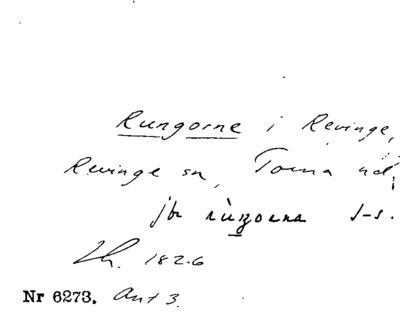 Rungorne i Revinge,
Revinge sn, Torna hd;
jbr rùngorna s-s.
Lh. 1826
Nr 6273. Ant 3.